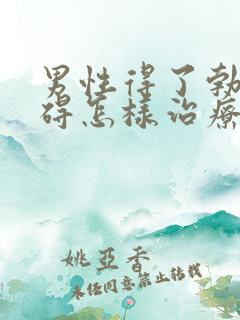 男性得了勃
碍怎样治疗
姚亚香
未经同意禁止转载